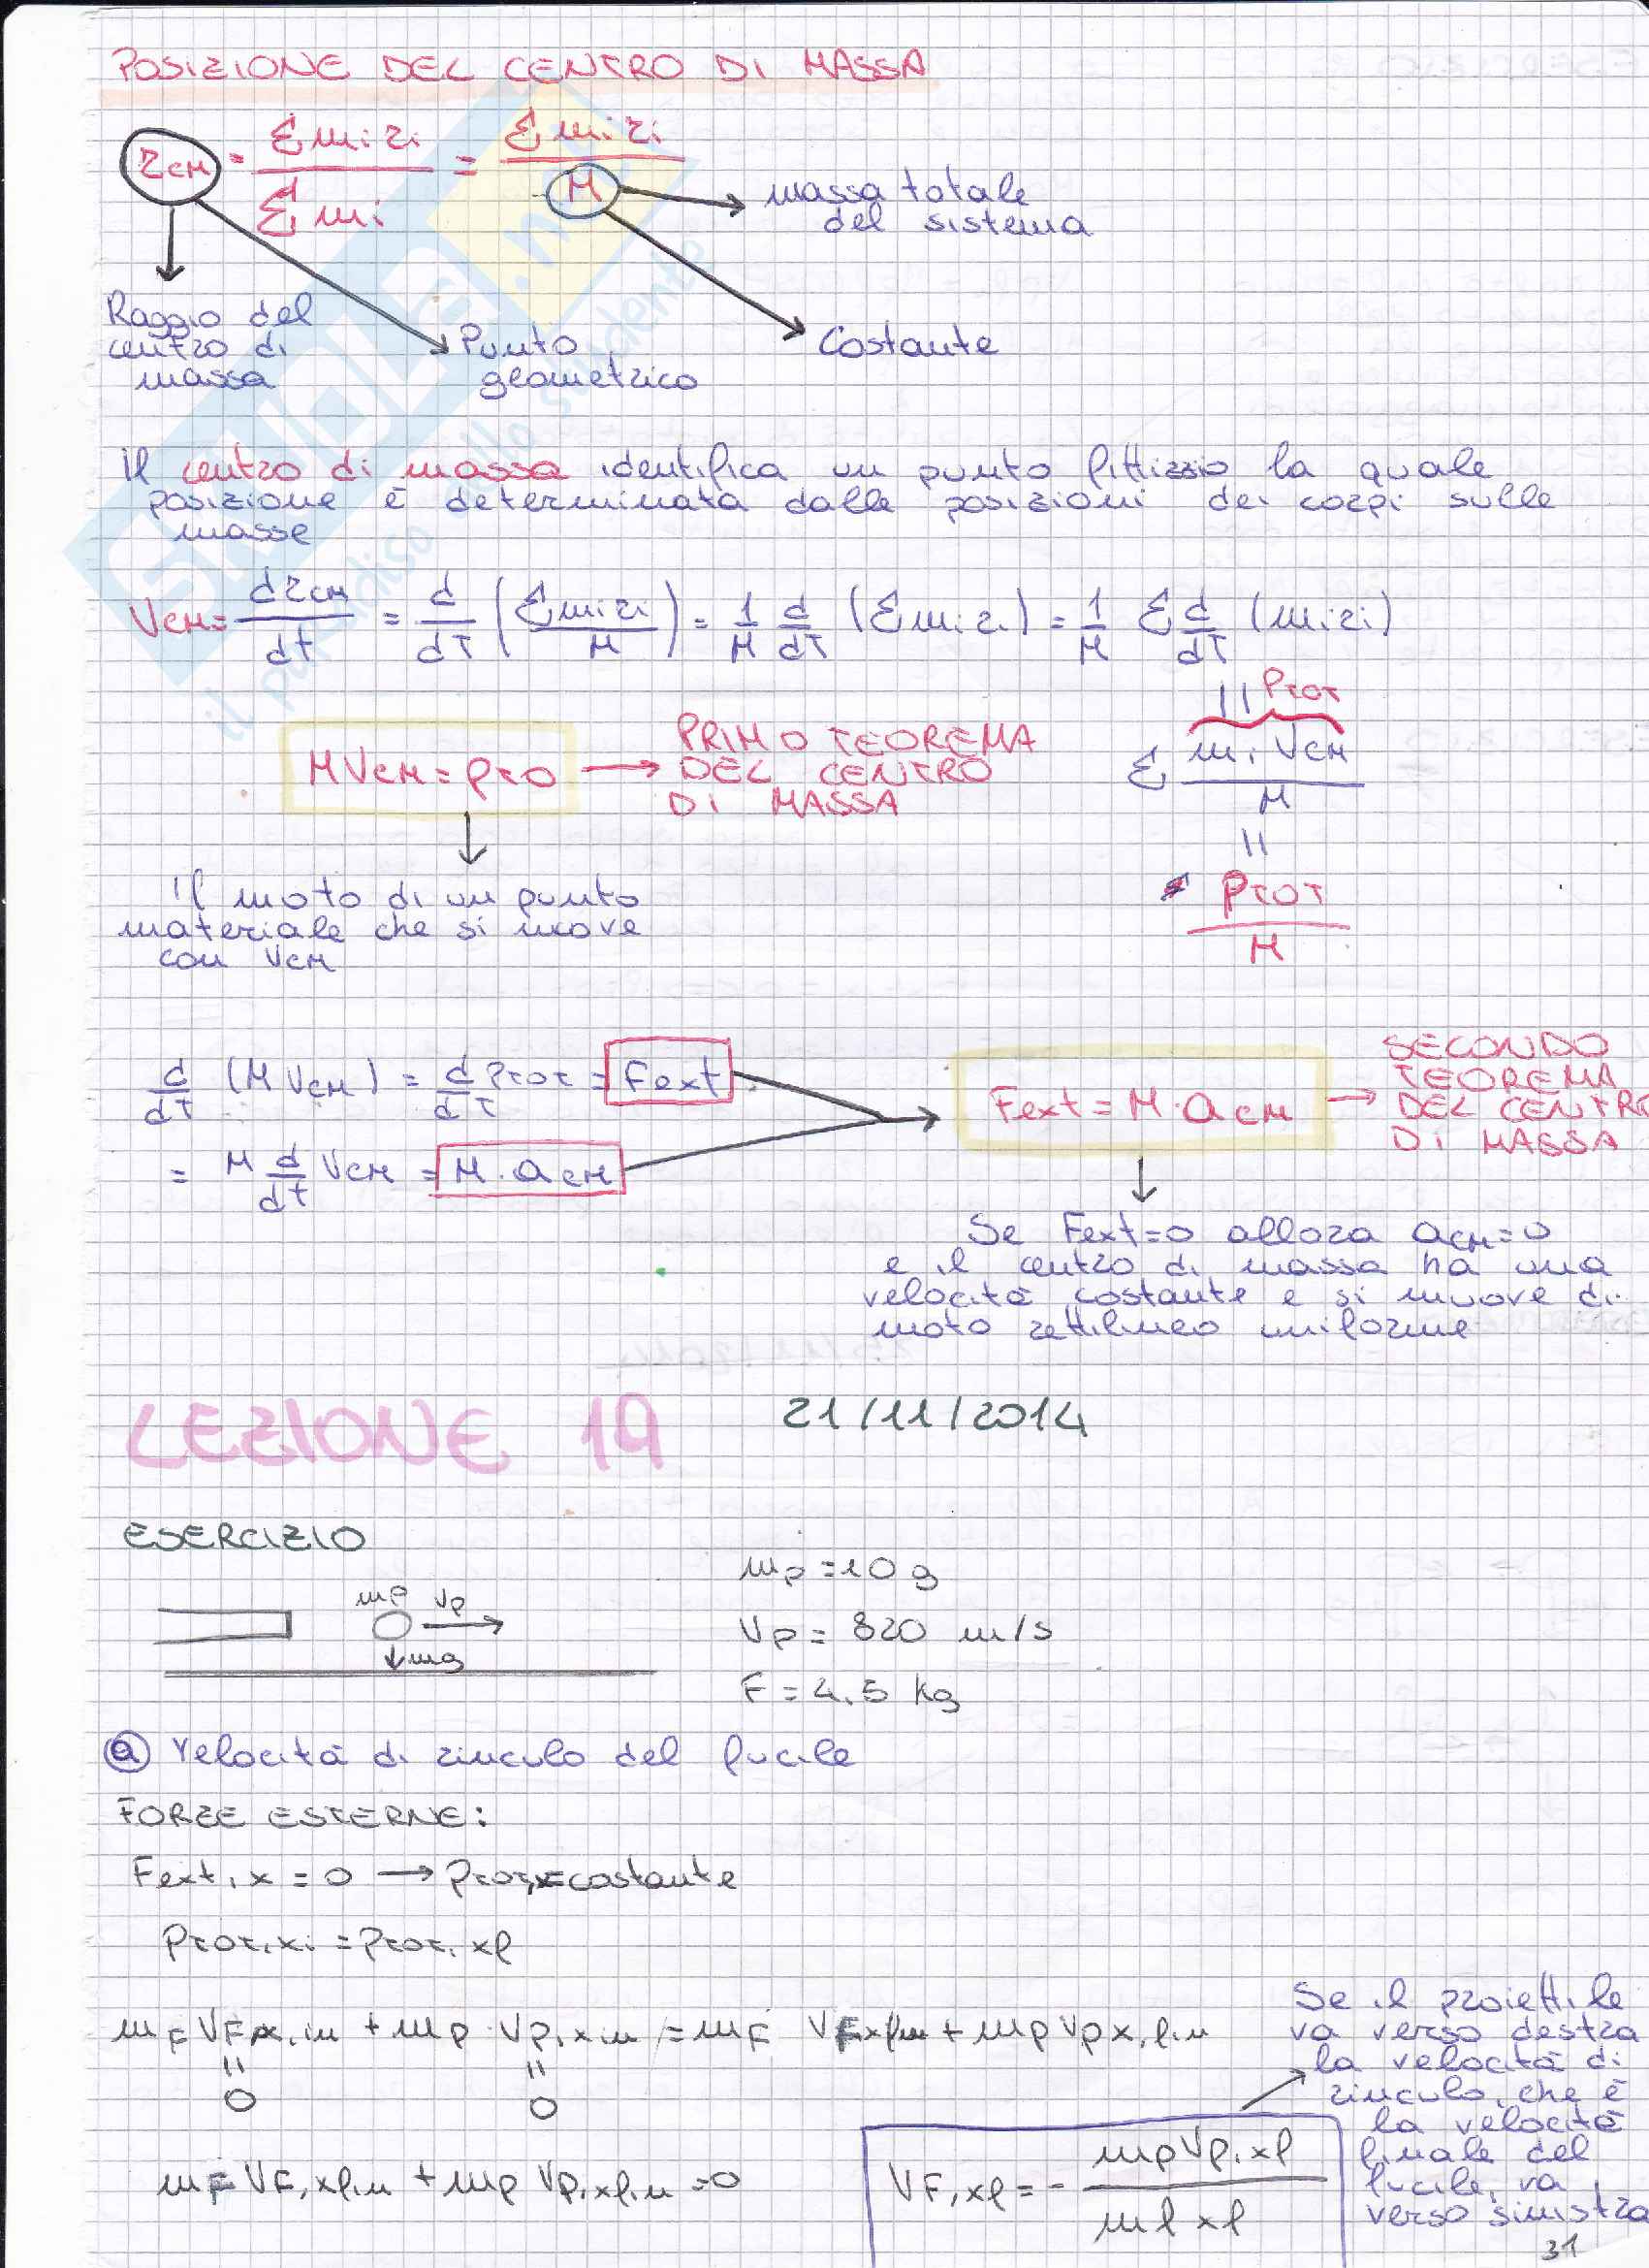 POSIZIONE DEL CENTRO DI MASSA
rCM = Σ mi ri / Σ mi = Σ mi ri / M
massa totale
del sistema
Raggio del
centro di
massa
Punto
geometrico
Costante
Il centro di massa identifica un punto fittizzio la quale
posizione è determinata dalle posizioni dei corpi sulle
masse
VCM = drCM/dt = d/dT (Σ mi ri / M) = 1/M d/dT (Σ mi ri) = 1/M Σ d/dT (mi ri)
PTOT
MVCM = pTO → PRIMO TEOREMA
DEL CENTRO
DI MASSA
Σ mi VCM / M
=
PTOT / M
Il moto di un punto
materiale che si move
con VCM
d/dT (M VCM) = d/dT PTOT = Fext
= M d/dt VCM = M · aCM
Fext = M · aCM → SECONDO
TEOREMA
DEL CENTRO
DI MASSA
Se Fext = 0 allora aCM = 0
e il centro di massa ha una
velocità costante e si muove di
moto rettilineo uniforme
LEZIONE 19 21/11/2014
ESERCIZIO
mp Vp
mg
mp = 10 g
Vp = 820 m/s
F = 4,5 kg
a velocità di rinculo del fucile
FORZE ESTERNE:
Fext,x = 0 → PTOT,x = costante
PTOT,xi = PTOT,xf
mF VFx,in + mp · Vp,xin = mF VFxfin + mp Vpx,fin
= =
0 0
mF VF,xfin + mp Vp,xfin = 0
VF,xf = - mp Vp,xf / mf xf
Se il proiettile
va verso destra
la velocità di
rinculo, che è
la velocità
finale del
fucile, va
verso sinistra
31
SKUOLA.net
il paradiso dello studente